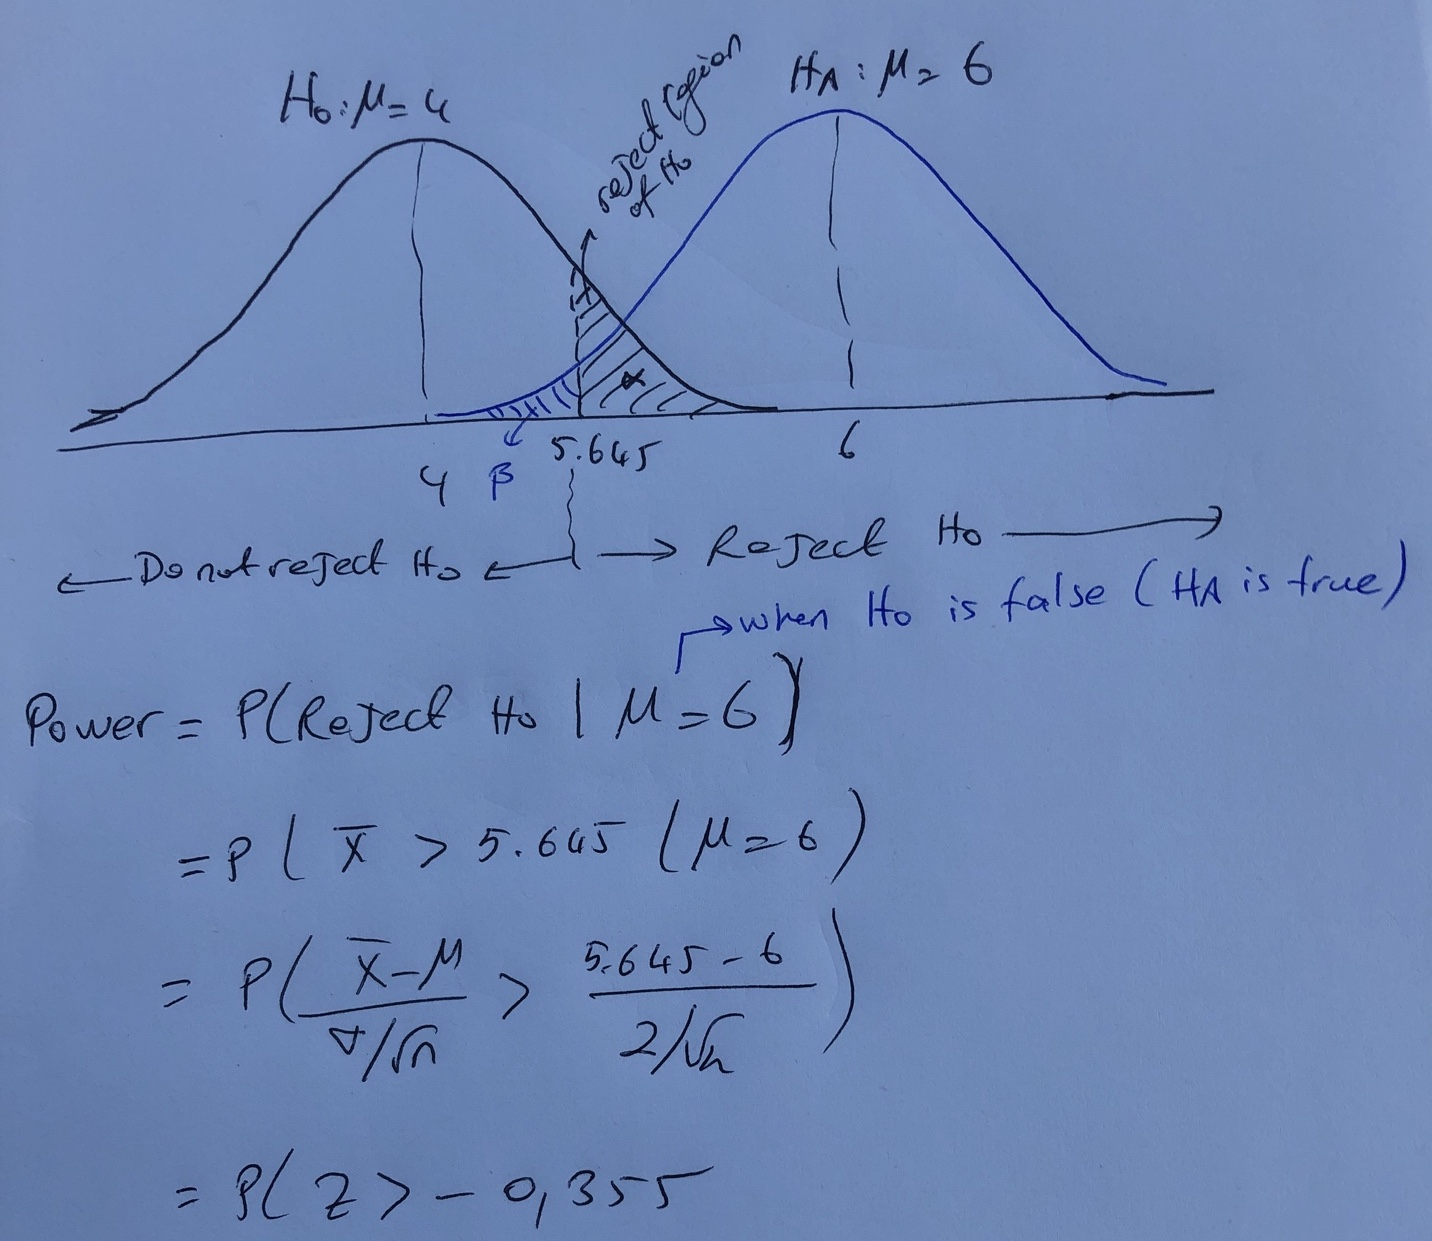 H₀: μ = 4
reject region
of H₀
H_A: μ = 6
α
4
β
5.645
6
← Do not reject H₀ ←
→ Reject H₀ →
→ when H₀ is false (H_A is true)
Power = P(Reject H₀ | μ = 6)
= P( X̄ > 5.645 ( μ = 6 )
= P( (X̄ - μ)/(σ/√n) > (5.645 - 6)/(2/√n) )
= P( Z > - 0,355